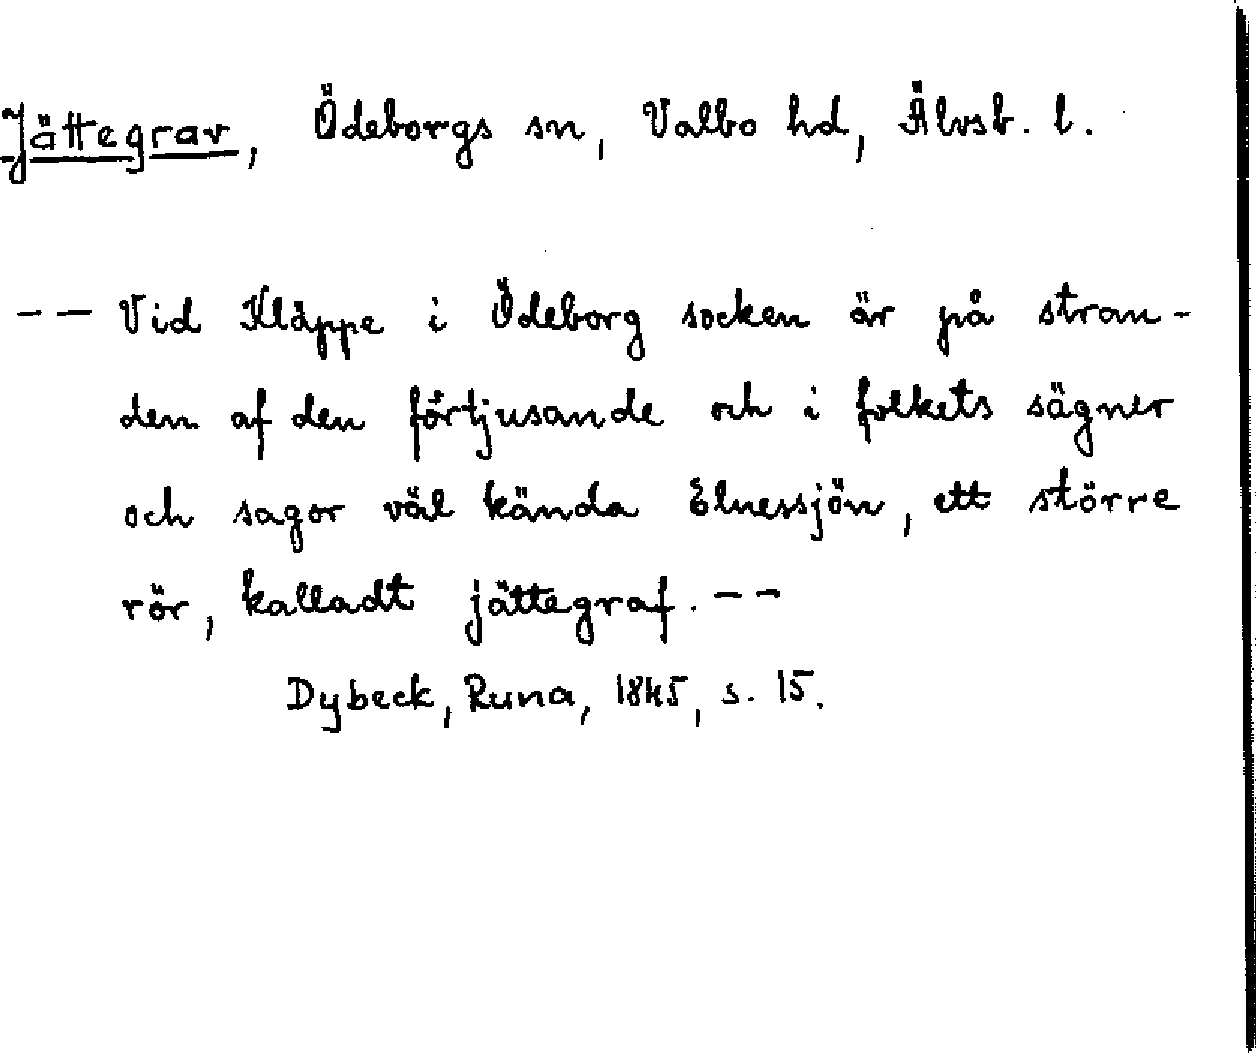 Jättegrav, Ödeborgs sn, Valbo hd, Älvsb. l.
-- Vid Kläppe i Ödeborg socken är på stran-
den af den förtjusande och i folkets sägner
och sagor väl kända Elnessjön, ett större
rör, kalladt jättegraf. --
Dybeck, Runa, 1845, s. 15.